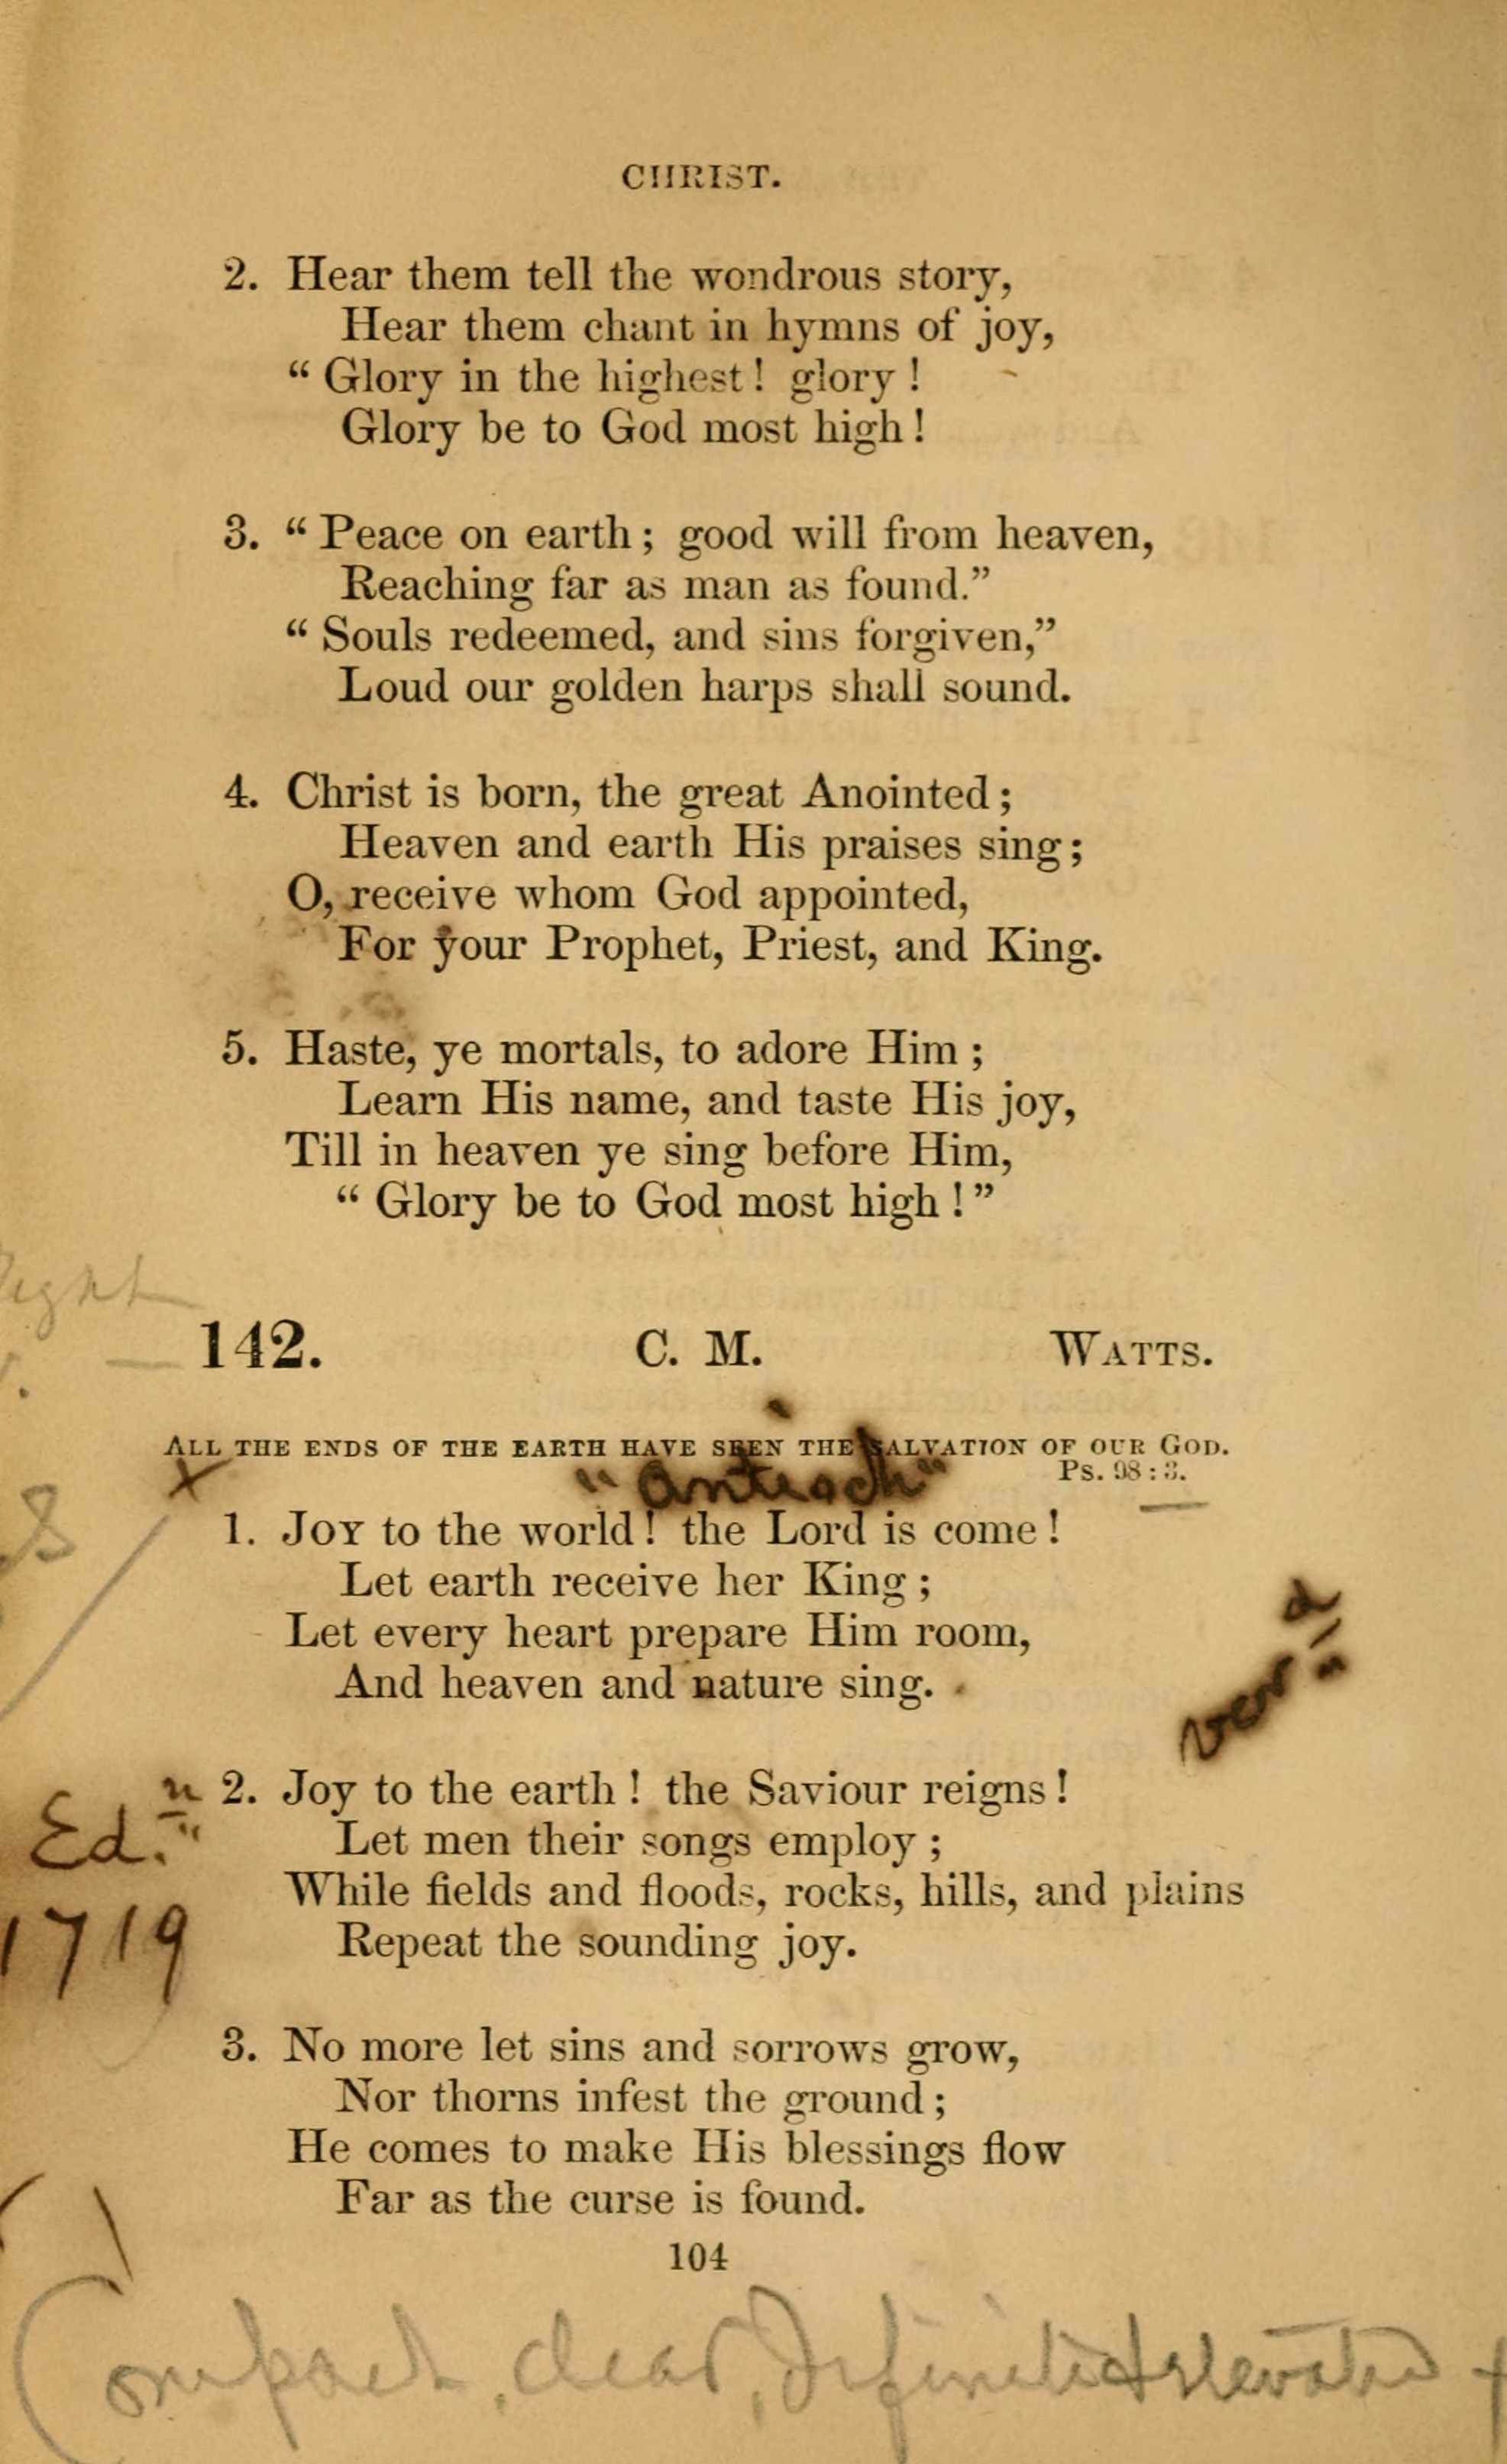 CHRIST.
2. Hear them tell the wondrous story,
Hear them chant in hymns of joy,
“ Glory in the highest ! glory !
Glory be to God most high !
3. “ Peace on earth ; good will from heaven,
Reaching far as man as found.”
“ Souls redeemed, and sins forgiven,”
Loud our golden harps shall sound.
4. Christ is born, the great Anointed ;
Heaven and earth His praises sing ;
O, receive whom God appointed,
For your Prophet, Priest, and King.
5. Haste, ye mortals, to adore Him ;
Learn His name, and taste His joy,
Till in heaven ye sing before Him,
“ Glory be to God most high ! ”
142. C. M. WATTS.
ALL THE ENDS OF THE EARTH HAVE SEEN THE SALVATION OF OUR GOD.
Ps. 98 : 3.
"Antioch"
1. JOY to the world ! the Lord is come !
Let earth receive her King ;
Let every heart prepare Him room,
And heaven and nature sing.
2. Joy to the earth ! the Saviour reigns !
Let men their songs employ ;
While fields and floods, rocks, hills, and plains
Repeat the sounding joy.
Ed.n
1719
3. No more let sins and sorrows grow,
Nor thorns infest the ground ;
He comes to make His blessings flow
Far as the curse is found.
104
Compact, clear, definite & elevated